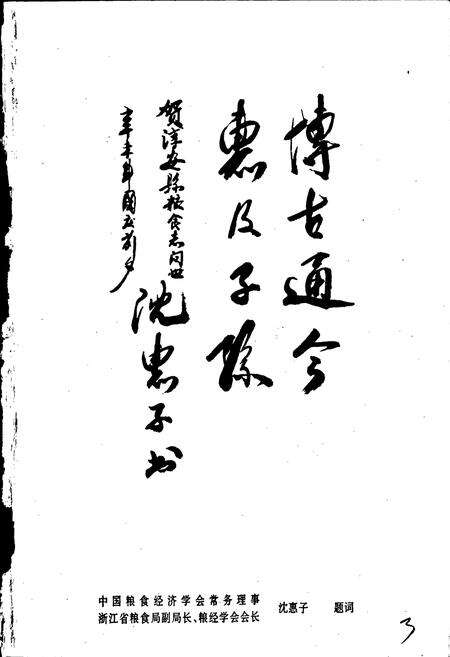 博古通今
惠及子孙
贺淳安县粮食志问世
辛未年国庆前夕
沈惠子书
中国粮食经济学会常务理事
浙江省粮食局副局长、粮经学会会长
沈惠子 题词
3